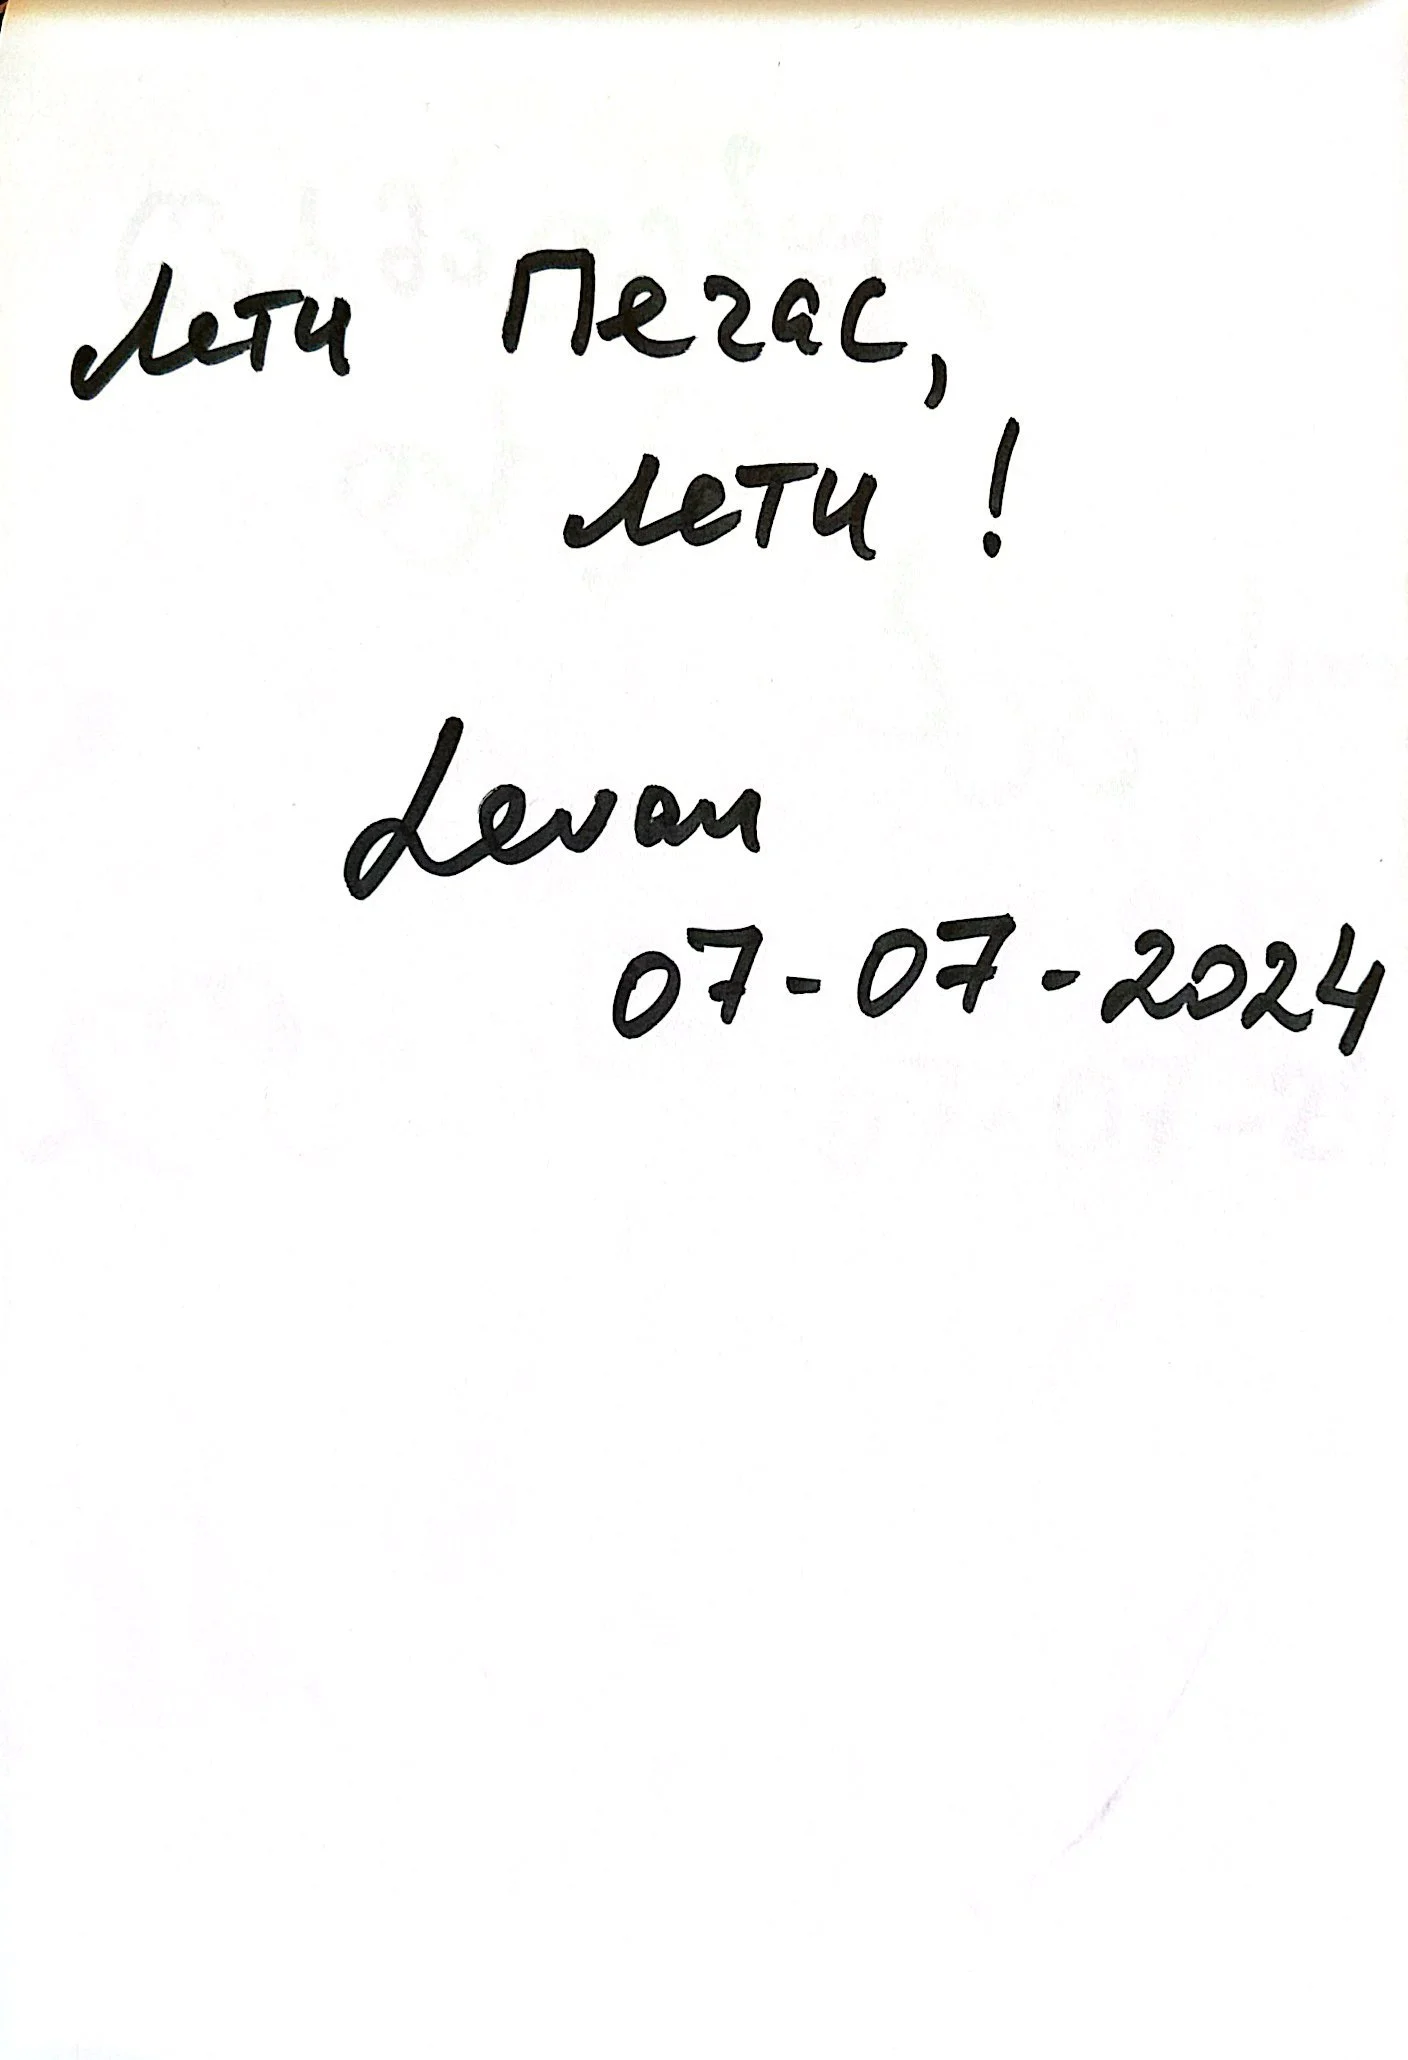 Лети Пегас,
лети!
Levan
07-07-2024